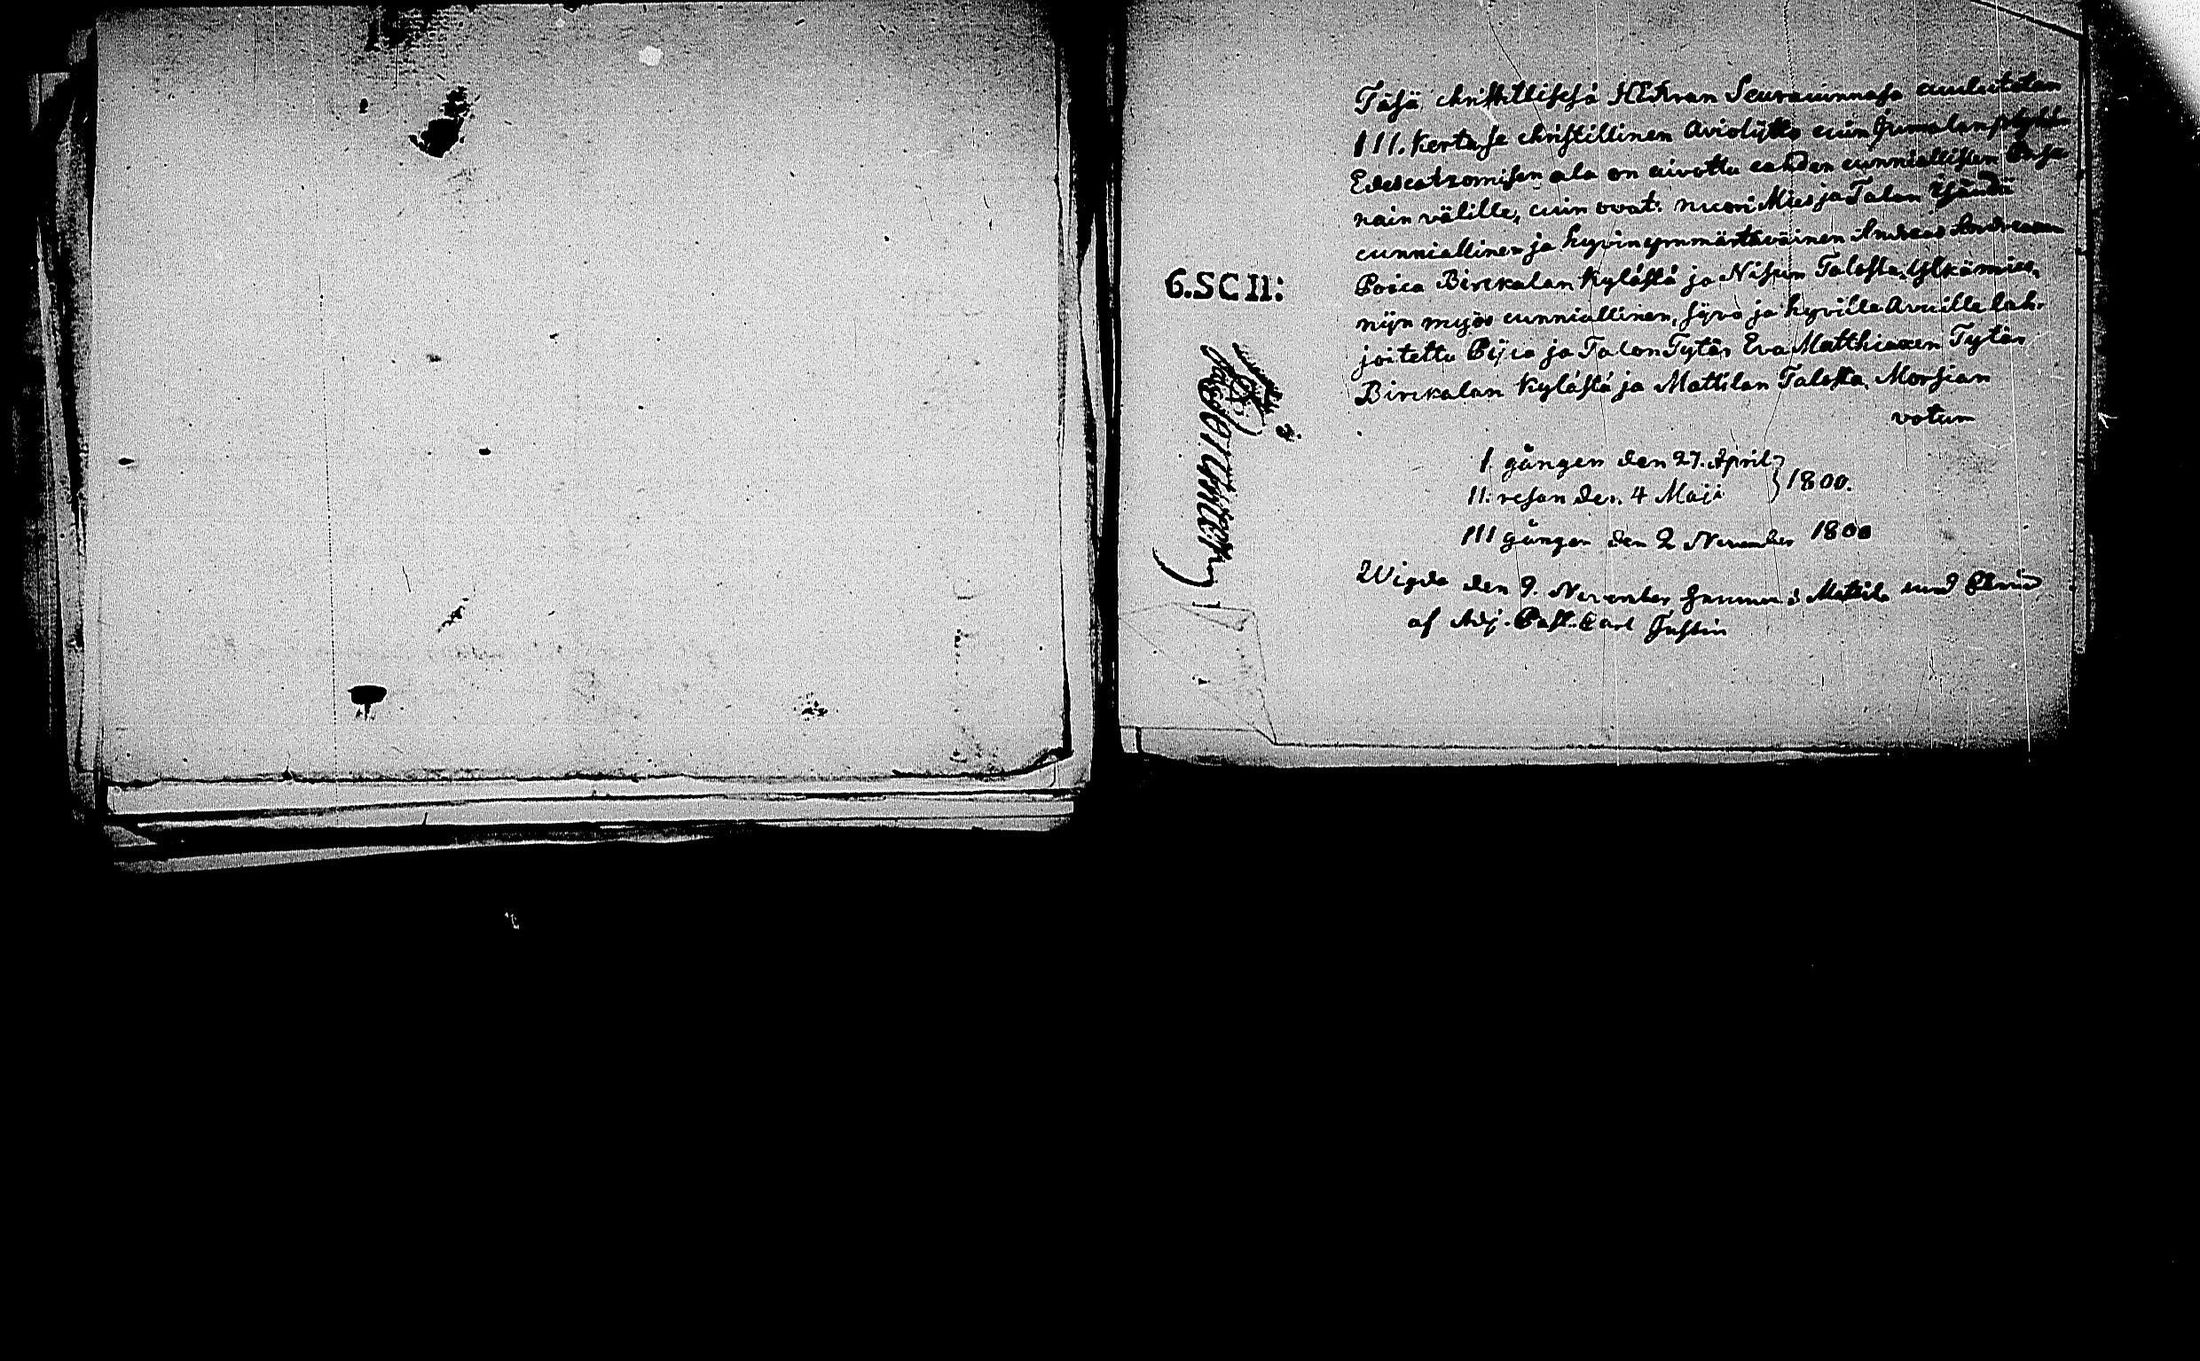 Täsä christillisesä HERran Seuracunnasa cuulutetan
III. Kertasse christillinen Aviolijtto cuin Jumalan pyhän
Edescatzomisen ala on aivottu cahden cunniallisen
nain välille, cuin ovat: nuori Mies ja Talon Isändä
cunniallinen ja hyvinymmärtäväinen Andreas Andreaxen
Poica Birckalan Kylästä ja Nisun Talosta, Ylkämies,
nijn myös cunniallinen, sijvo ja hyville Avuille lah-
joitettu Pijca ja Talon Tytär Eva Matthiaxen Tytär
Birckalan Kylästä ja Mattilan Talosta, Morsian
votum
6.SC II:
I gången den 27. April
II. resan den 4 Maji } 1800.
III gången den 2 November 1800
Wigde den 9. November Mattila
af Adj. Past. Carl Justin